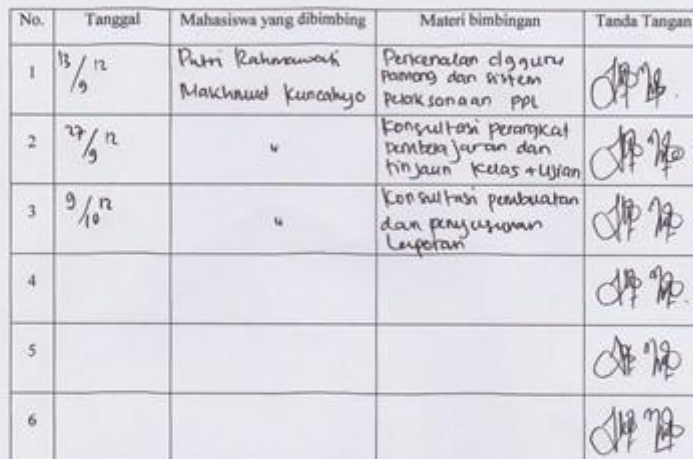 No. Tanggal Mahasiswa yang dibimbing Materi bimbingan Tanda Tangan
1 13/9 12 Putri Rahmawati Perkenalan dg guru
Makhmud Kuncahyo pamong dan sistem
pelaksanaan PPL
2 27/9 12 " Konsultasi perangkat
pembelajaran dan
tinjaun kelas + Ujian
3 9/10 12 " Konsultasi pembuatan
dan penyusunan
Laporan
4
5
6